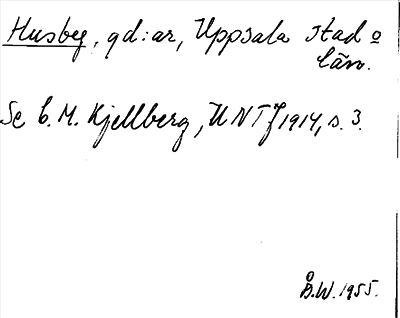 Husbyg, gd:ar, Uppsala stad o
län.
Se C.M. Kjellberg, UNTJ 1914, s. 3.
Å.W. 1955.